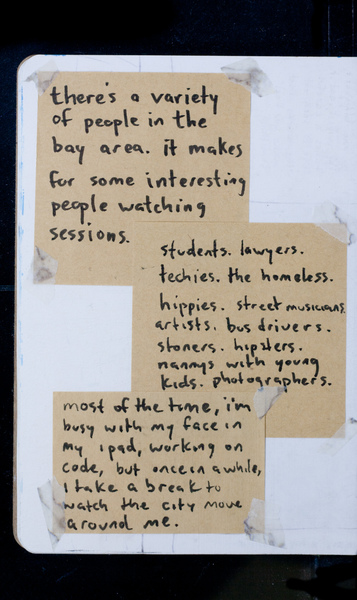 there's a variety
of people in the
bay area. it makes
for some interesting
people watching
sessions.
students. lawyers.
techies. the homeless.
hippies. street musicians.
artists. bus drivers.
stoners. hipsters.
nannys with young
kids. photographers.
most of the time, i'm
busy with my face in
my ipad, working on
code, but once in a while,
I take a break to
watch the city move
around me.